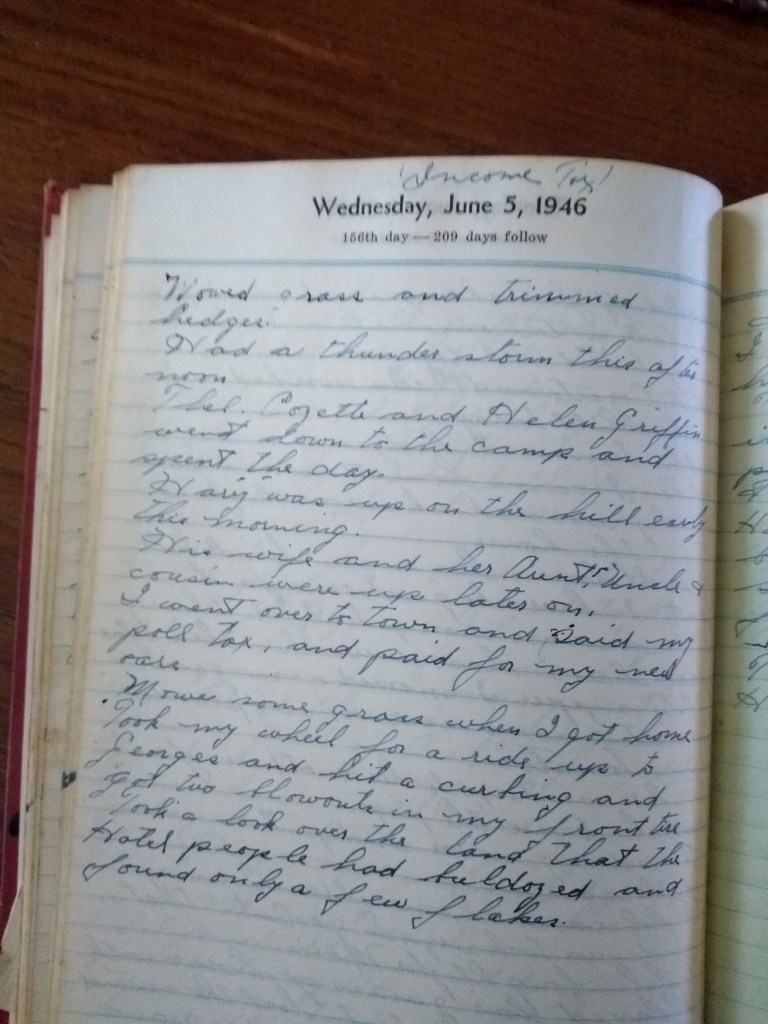 (Income Tax)
Wednesday, June 5, 1946
156th day — 209 days follow
Mowed grass and trimmed
hedges.
Had a thunder storm this after
noon
Thel. Cozette and Helen Griffin
went down to the camp and
spent the day.
Harry was up on the hill early
this morning.
His wife and her Aunt, Uncle &
cousin were up later on.
I went over to town and paid my
poll tax, and paid for my new
oars
Mowe some grass when I got home
Took my wheel for a ride up to
Georges and hit a curbing and
got two blowouts in my front tire
Took a look over the land that the
Hotel people had buldozed and
found only a few flakes.